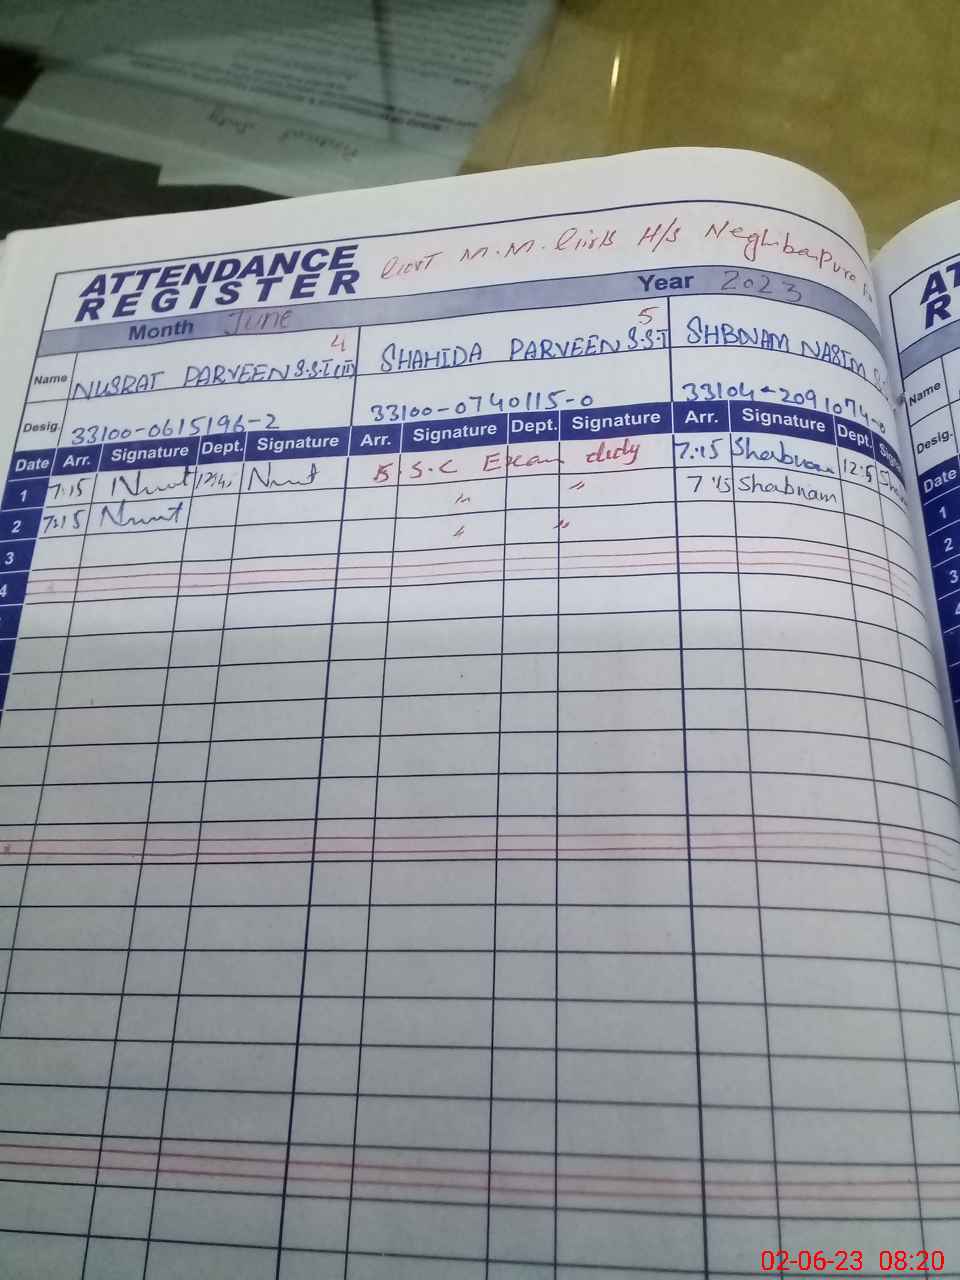 ATTENDANCE
REGISTER
Govt M.M. Girls H/S Neghibapura
Month June Year 2023
4 5
Name NUSRAT PARVEEN S.S.T(II) SHAHIDA PARVEEN S.S.T SHBNAM NASIM
Desig. 33100-0615196-2 33100-0740115-0 33104-2091074-0
Date Arr. Signature Dept. Signature Arr. Signature Dept. Signature Arr. Signature Dept.
1 7:15 S.S.C Exam duty 7:15 Shabnam
2 7:15 〃 〃 7:15 Shabnam
3 〃 〃
4
AT
R
Name
Desig.
Date
1
2
3
02-06-23 08:20